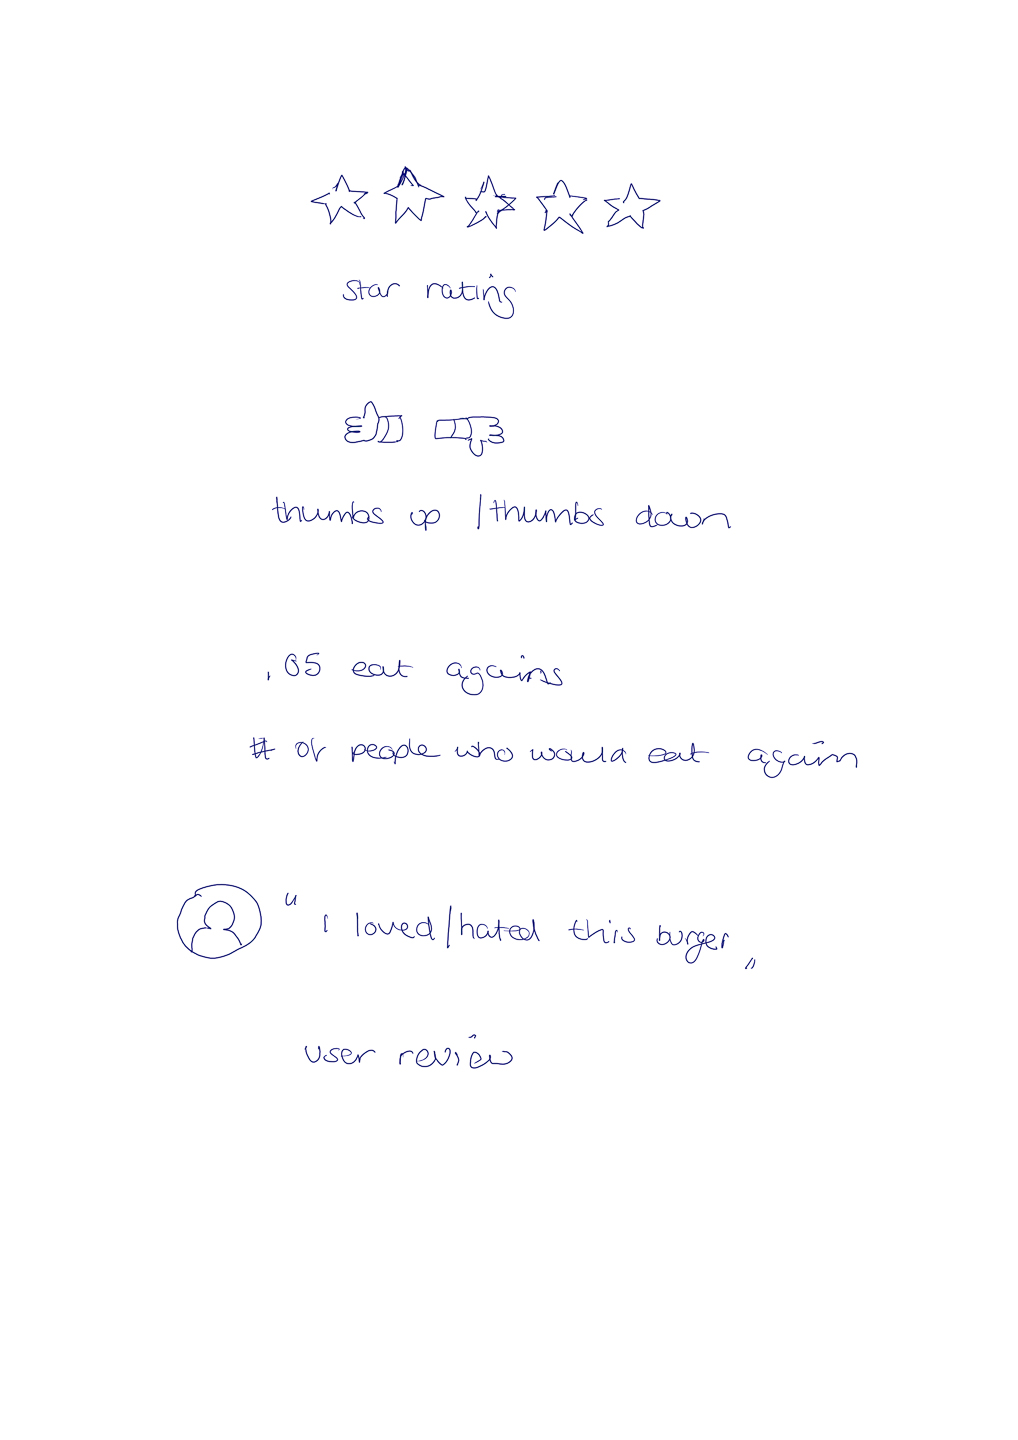 star rating
thumbs up / thumbs down
.85 eat agains
# of people who would eat again
" I loved/hated this burger "
user review